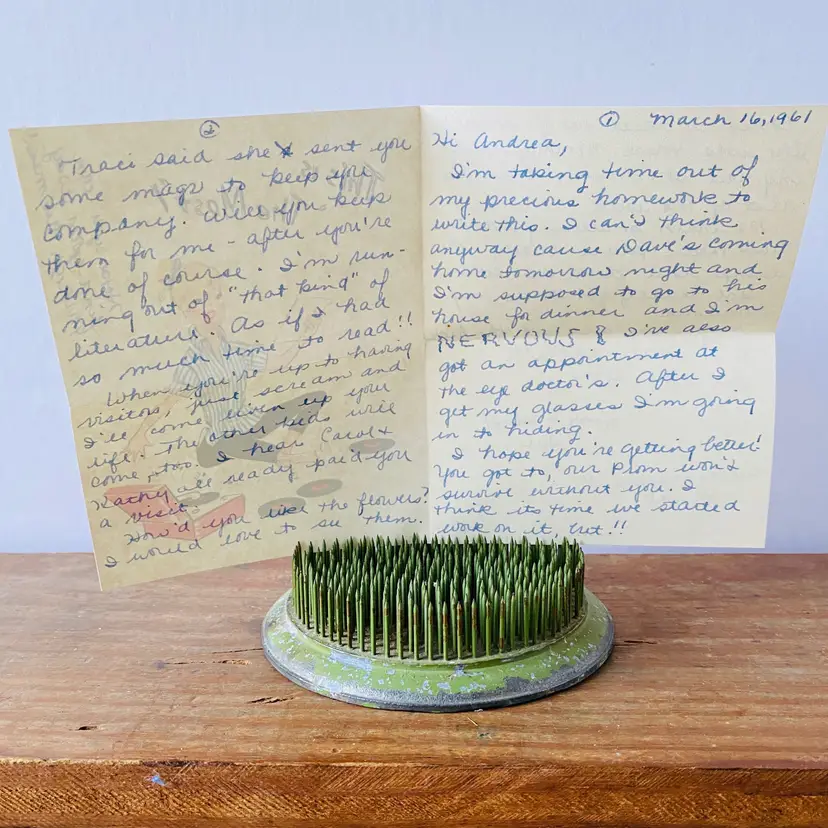 ① March 16, 1961
Hi Andrea,
I'm taking time out of
my precious homework to
write this. I can't think
anyway cause Dave's coming
home tomorrow night and
I'm supposed to go to his
house for dinner and I'm
NERVOUS! I've also
got an appointment at
the eye doctor's. After I
get my glasses I'm going
in to hiding.
I hope you're getting better!
You got to, our Prom won't
survive without you. I
think its time we started
work on it, but!!
②
Traci said she sent you
some mags to keep you
company. Will you keep
them for me - after you're
done of course. I'm run-
ning out of "that kind" of
literature. As if I had
so much time to read!!
When you're up to having
visitors, just scream and
I'll come liven up your
life. The other kids will
come, too. I hear Carol &
Kathy all ready paid you
a visit.
How'd you like the flowers?
I would love to see them.